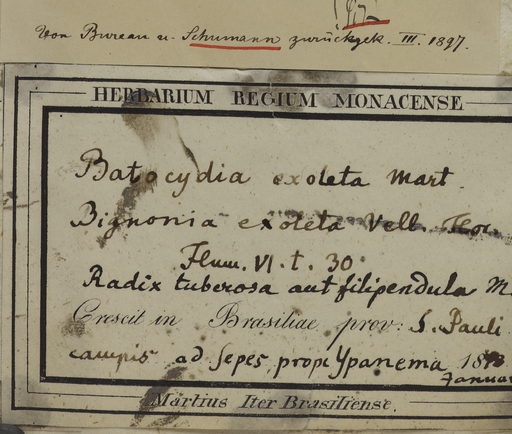 Von Bureau u. Schumann zurückgek. III. 1897.
HERBARIUM REGIUM MONACENSE
Batocydia exoleta Mart.
Bignonia exoleta Vell. Flor.
Flum. VI. t. 30
Radix tuberosa aut filipendula M
Crescit in Brasiliae prov: S. Pauli
campis ad sepes, prope Ypanema
Januar
Martius Iter Brasiliense.